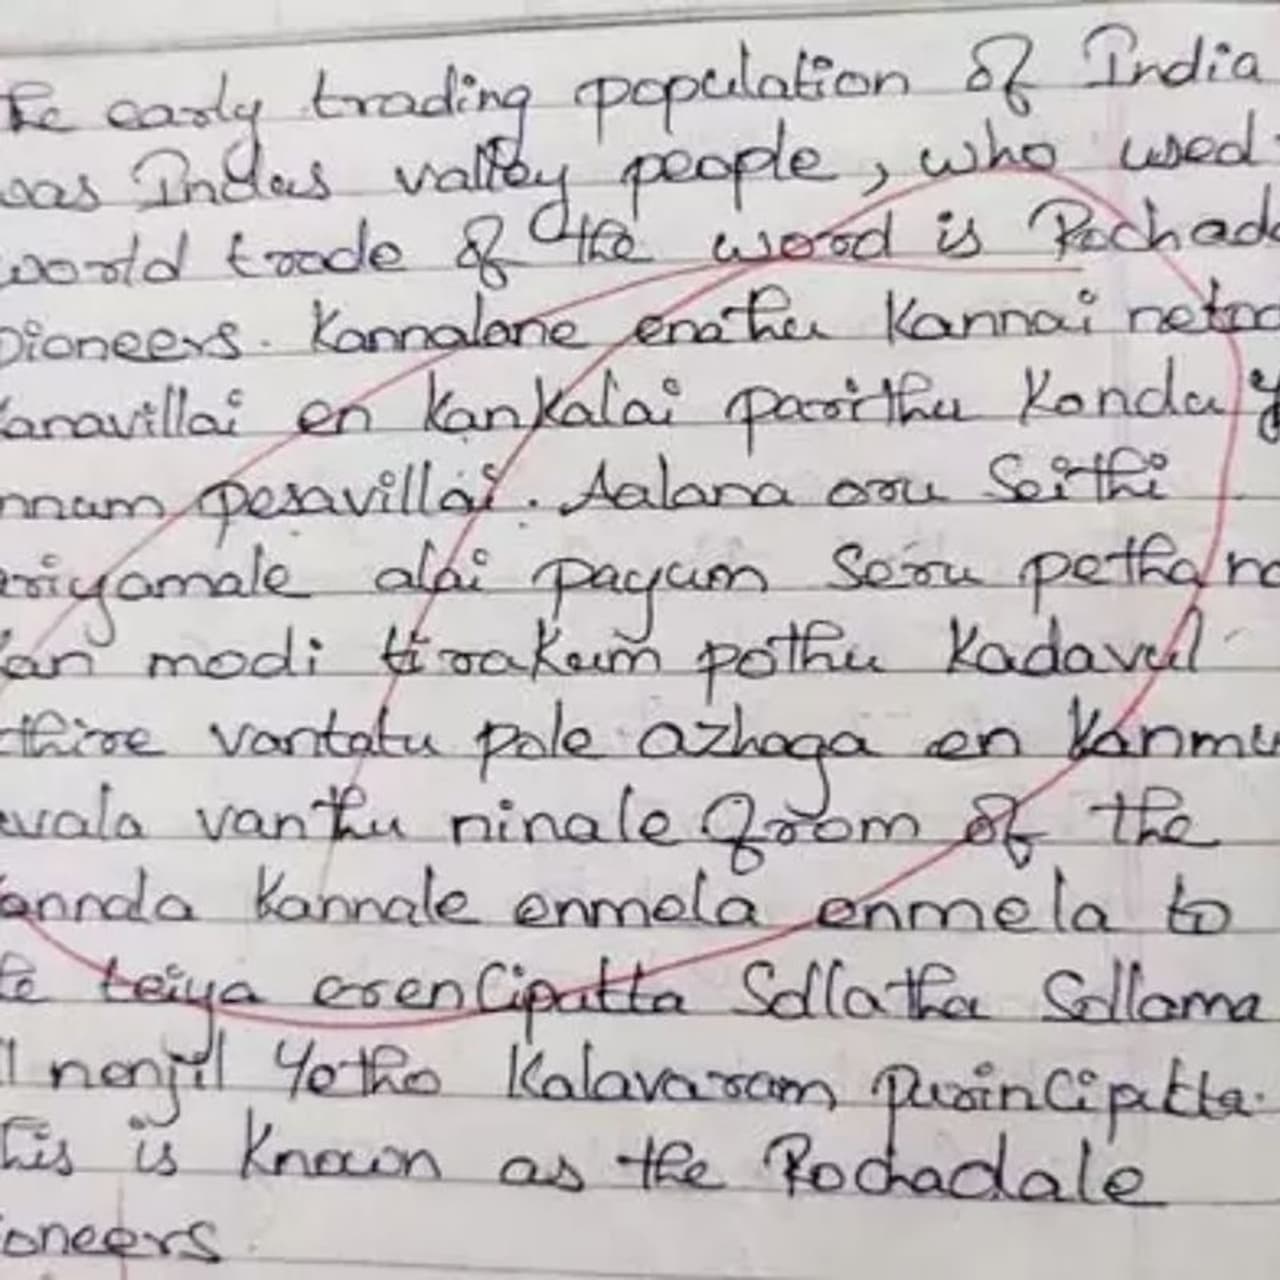 early trading population of India
Indus valley people, who used
world trade of the word is Rochad
pioneers. Kannalane enathu Kannai netra
anavillai en Kankalai parithu Kondu y
nnam pesavillai. Aalana oru Seithi
ariyamale alai payum Seru petha n
an modi tirakum pothu Kadavul
thire vantatu pole azhaga en Kanmu
vala vanthu ninale from of the
annda Kannale enmela enmela to
teiya erencipatta Sollatha Sollama
l nenjil Yetho Kalavaram purincipatta.
his is Known as the Rochadale
ioneers.